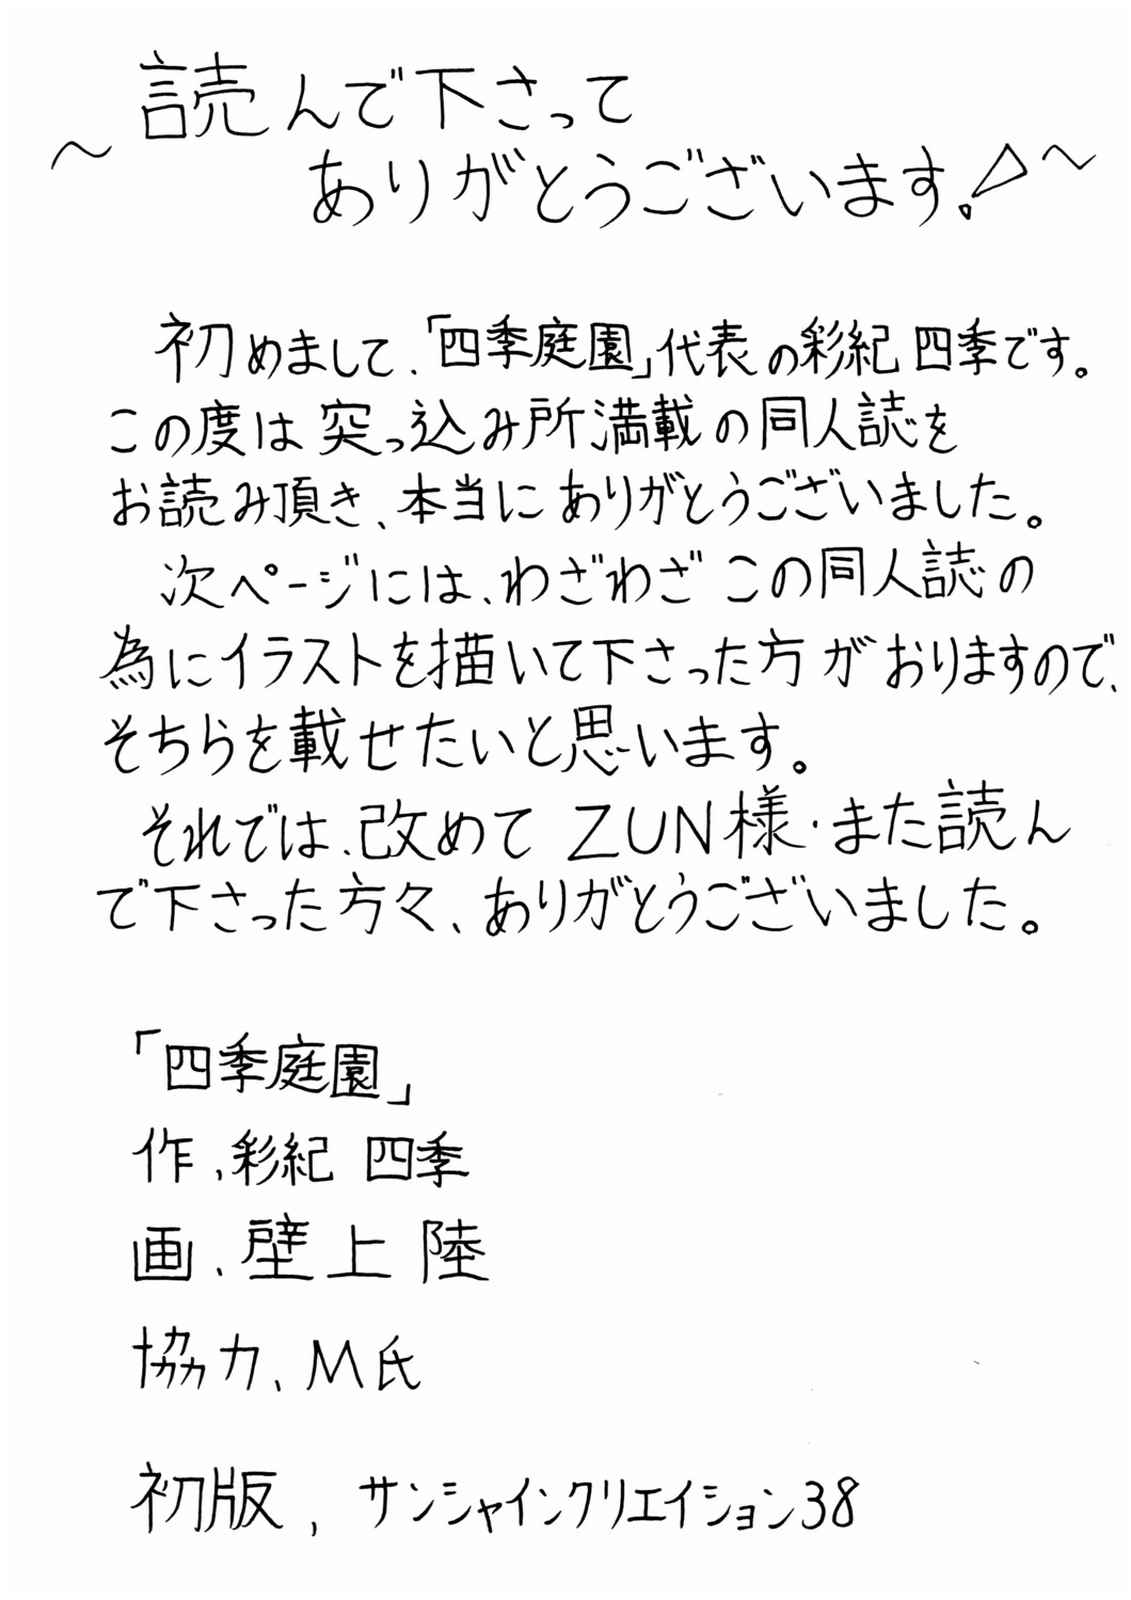 ～読んで下さって
ありがとうございます!～
初めまして、「四季庭園」代表の彩紀 四季です。
この度は突っ込み所満載の同人誌を
お読み頂き、本当にありがとうございました。
次ページには、わざわざこの同人誌の
為にイラストを描いて下さった方がおりますので、
そちらを載せたいと思います。
それでは、改めてZUN様・また読ん
で下さった方々、ありがとうございました。
「四季庭園」
作、彩紀 四季
画、壁上 陸
協力、M氏
初版, サンシャインクリエイション38